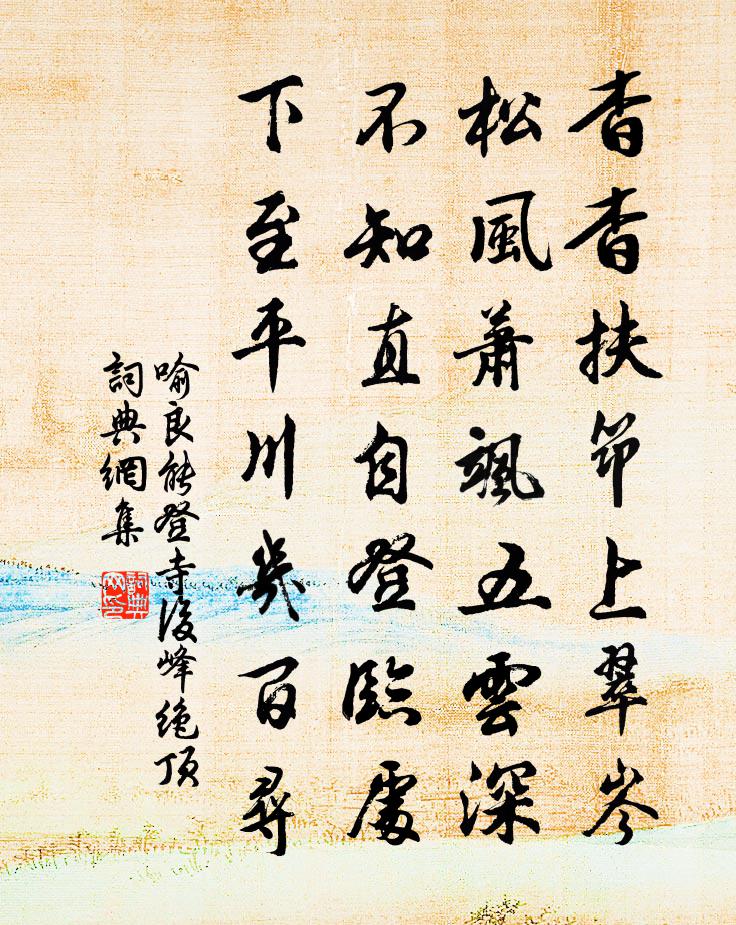 杳杳扶筇上翠岑
松風蕭颯五雲深
不知直自登臨處
下至平川幾百尋
喻良能登寺後峰絶頂
詞典網集
詞典网印